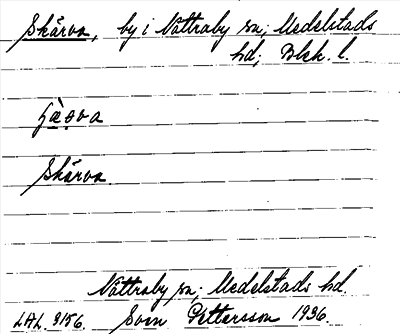 Skärva, by i Nättraby sn; Medelstads
hd; Blek. l.
Skärva.
Nättraby sn; Medelstads hd.
LAL. 9156. Sven Pettersson 1936.